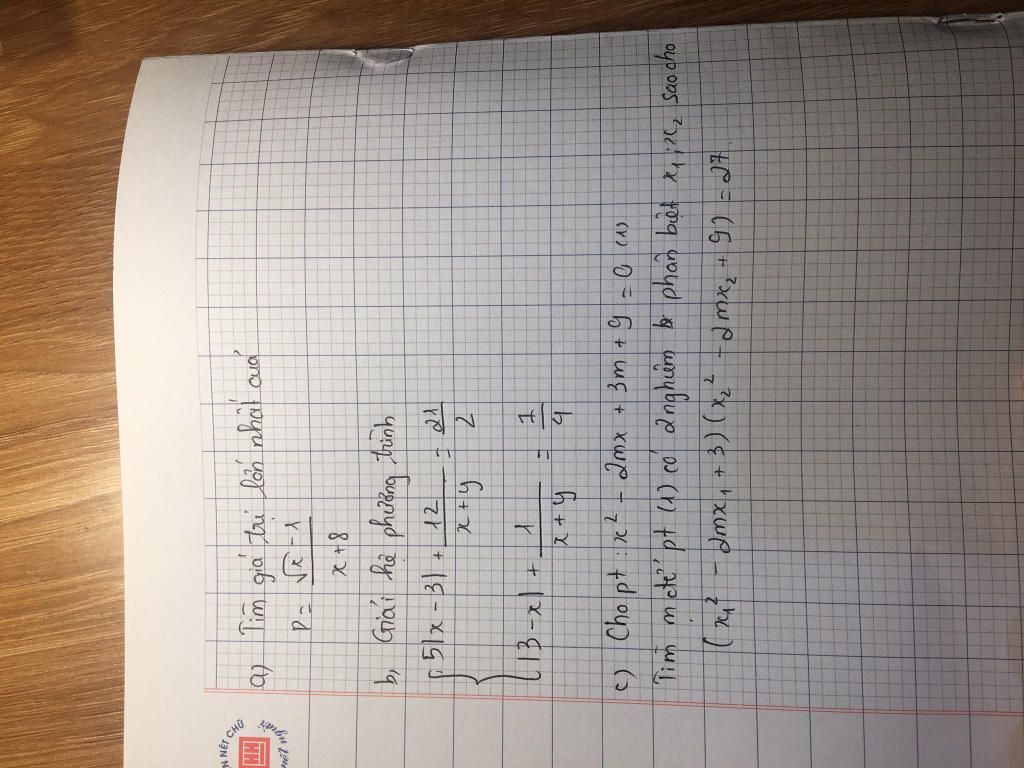 a) Tìm giá trị lớn nhất của
P = (√x - 1)/(x + 8)
b, Giải hệ phương trình
{ 5|x - 3| + 12/(x + y) = 21/2
|3 - x| + 1/(x + y) = 7/4
c) Cho pt : x² - 2mx + 3m + 9 = 0 (1)
Tìm m để pt (1) có 2 nghiệm phân biệt x₁, x₂ sao cho
(x₁² - 2mx₁ + 3)(x₂² - 2mx₂ + 9) = 27.
NÉT CHỮ